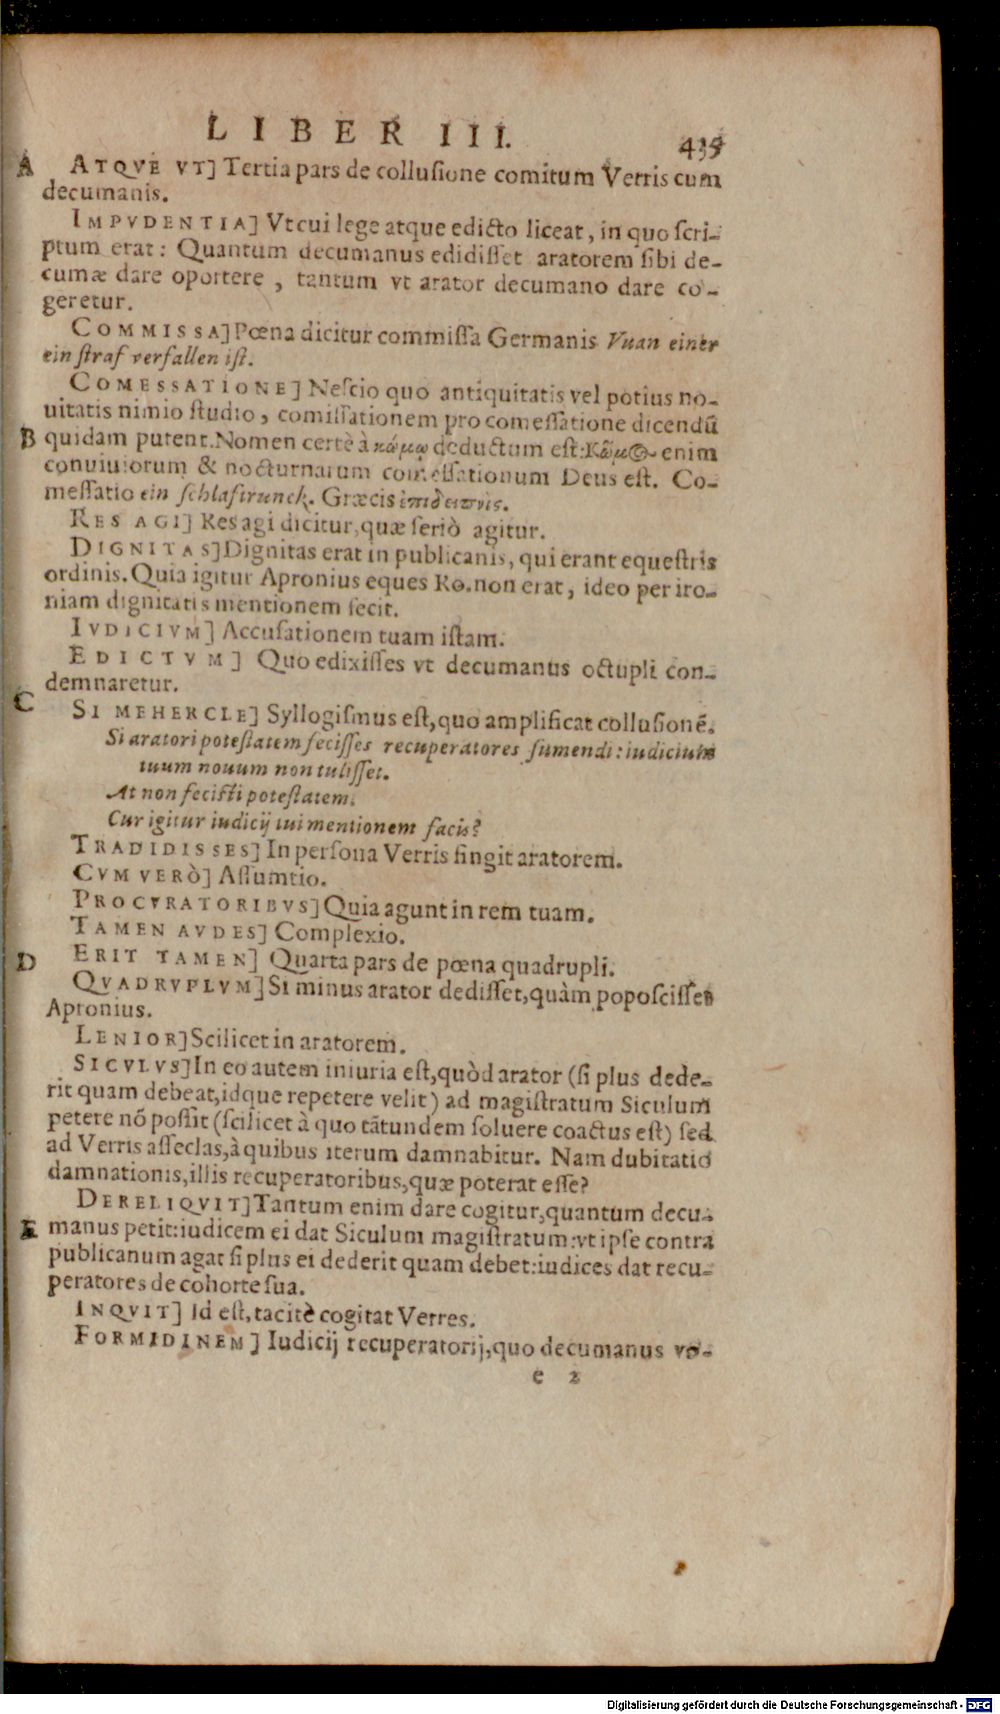 LIBER III. 435
A ATQVE VT] Tertia pars de collusione comitum Verris cum
decumanis.
IMPVDENTIA] Vt cui lege atque edicto liceat, in quo scri-
ptum erat: Quantum decumanus edidisset aratorem sibi de-
cumæ dare oportere, tantum vt arator decumano dare co-
geretur.
COMMISSA] Pœna dicitur commissa Germanis Vuan einer
ein straf verfallen ist.
COMESSATIONE] Nescio quo antiquitatis vel potius no-
uitatis nimio studio, comissationem pro comessatione dicendū
B quidam putent. Nomen certè à κώμῳ deductum est: Κῶμος enim
conuiuiorum & nocturnarum comessationum Deus est. Co-
messatio ein schlaftrunck. Græcis ἐπιδειπνὶς.
RES AGI] Res agi dicitur, quæ seriò agitur.
DIGNITAS] Dignitas erat in publicanis, qui erant equestris
ordinis. Quia igitur Apronius eques Ro. non erat, ideo per iro-
niam dignitatis mentionem fecit.
IVDICIVM] Accusationem tuam istam.
EDICTVM] Quo edixisses vt decumanus octupli con-
demnaretur.
C SI MEHERCLE] Syllogismus est, quo amplificat collusionē.
Si aratori potestatem fecisses recuperatores sumendi: iudicium
tuum nouum non tulisset.
At non fecisti potestatem.
Cur igitur iudicij tui mentionem facis?
TRADIDISSES] In persona Verris fingit aratorem.
CVM VERÒ] Assumtio.
PROCVRATORIBVS] Quia agunt in rem tuam.
TAMEN AVDES] Complexio.
D ERIT TAMEN] Quarta pars de pœna quadrupli.
QVADRVPLVM] Si minus arator dedisset, quàm poposcisset
Apronius.
LENIOR] Scilicet in aratorem.
SICVLVS] In eo autem iniuria est, quòd arator (si plus dede-
rit quam debeat, idque repetere velit) ad magistratum Siculum
petere nō possit (scilicet à quo tātundem soluere coactus est) sed
ad Verris asseclas, à quibus iterum damnabitur. Nam dubitatio
damnationis, illis recuperatoribus, quæ poterat esse?
DERELIQVIT] Tantum enim dare cogitur, quantum decu-
E manus petit: iudicem ei dat Siculum magistratum: vt ipse contra
publicanum agat si plus ei dederit quam debet: iudices dat recu-
peratores de cohorte sua.
INQVIT] Id est, tacitè cogitat Verres.
FORMIDINEM] Iudicij recuperatorij, quo decumanus vo-
e 2
Digitalisierung gefördert durch die Deutsche Forschungsgemeinschaft - DFG